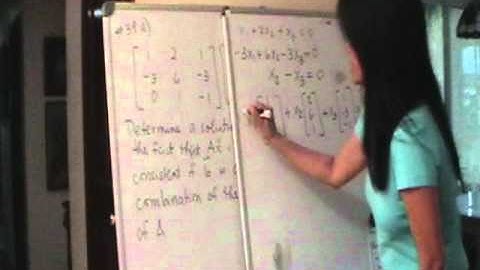 #39 a)
[ 1 2 1 ]
[ -3 6 -3 ]
[ 0 1 -1 ]
Determine a solution
the fact that Ax =
consistent if b is a
combination of the
of A
x₁ + 2x₂ + x₃ = 0
-3x₁ + 6x₂ - 3x₃ = 0
x₂ - x₃ = 0
+ x₂ [ 2 6 1 ] + x₃